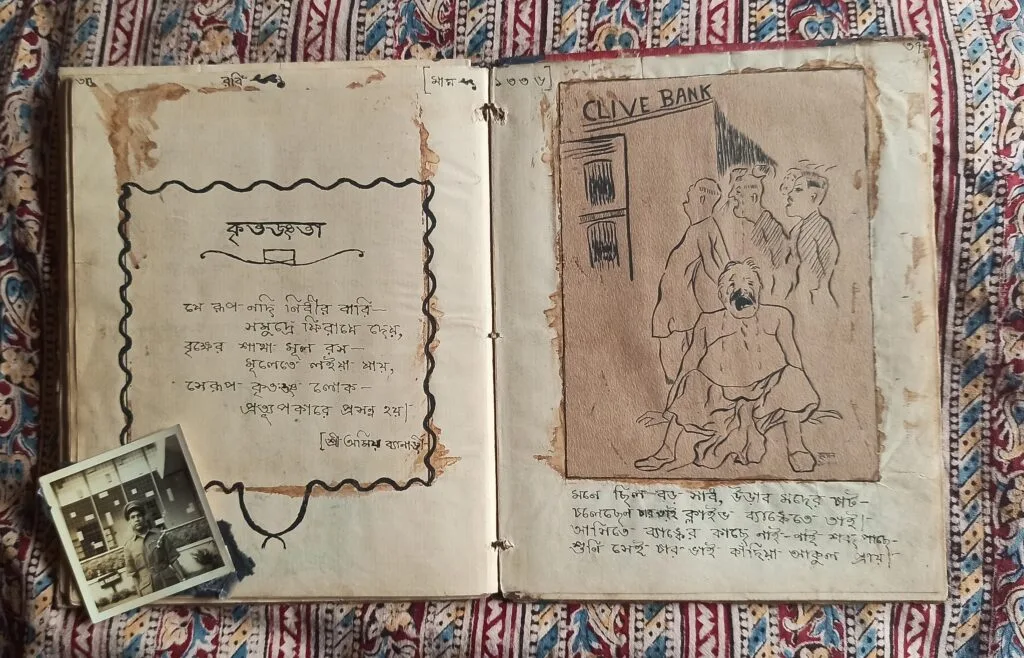 ৩৪
রবি
[মাঘ
কৃতজ্ঞতা
যে রূপ নদি নির্ঝীর বারি—
সমুদ্রে ফিরায়ে দেয়,
বৃক্ষের শাখা মূল রস—
মূলেতে লইয়া যায়,
সেরূপ কৃতজ্ঞ লোক—
প্রত্যুপকারে প্রসন্ন হয়।
[শ্রী অমিয় ব্যানার্জী
১৩৩৮]
৩৭
CLIVE BANK
মনে ছিল বড় সাধ, উঁড়াব মদের চাট—
চলেছেন চার ভাই ক্লাইভ ব্যাঙ্কেতে তাই।
আসিতে ব্যাঙ্কের কাছে নাই নাই শব্দ পাছে—
শুনি সেই চার ভাই কাঁদিয়া আকুল প্রায়।